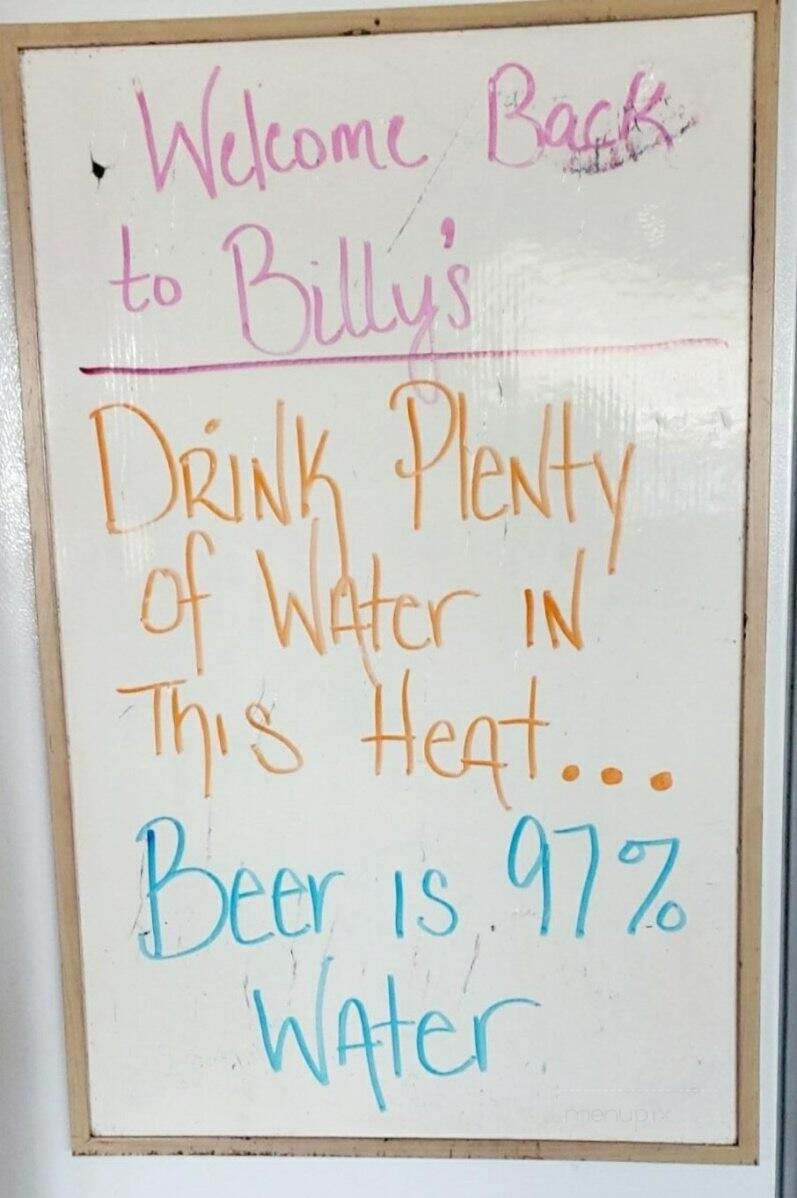 Welcome Back
to Billy's
DRINK PleNty
of WAter IN
THIS HeAt...
Beer is 97%
WAter
menupix